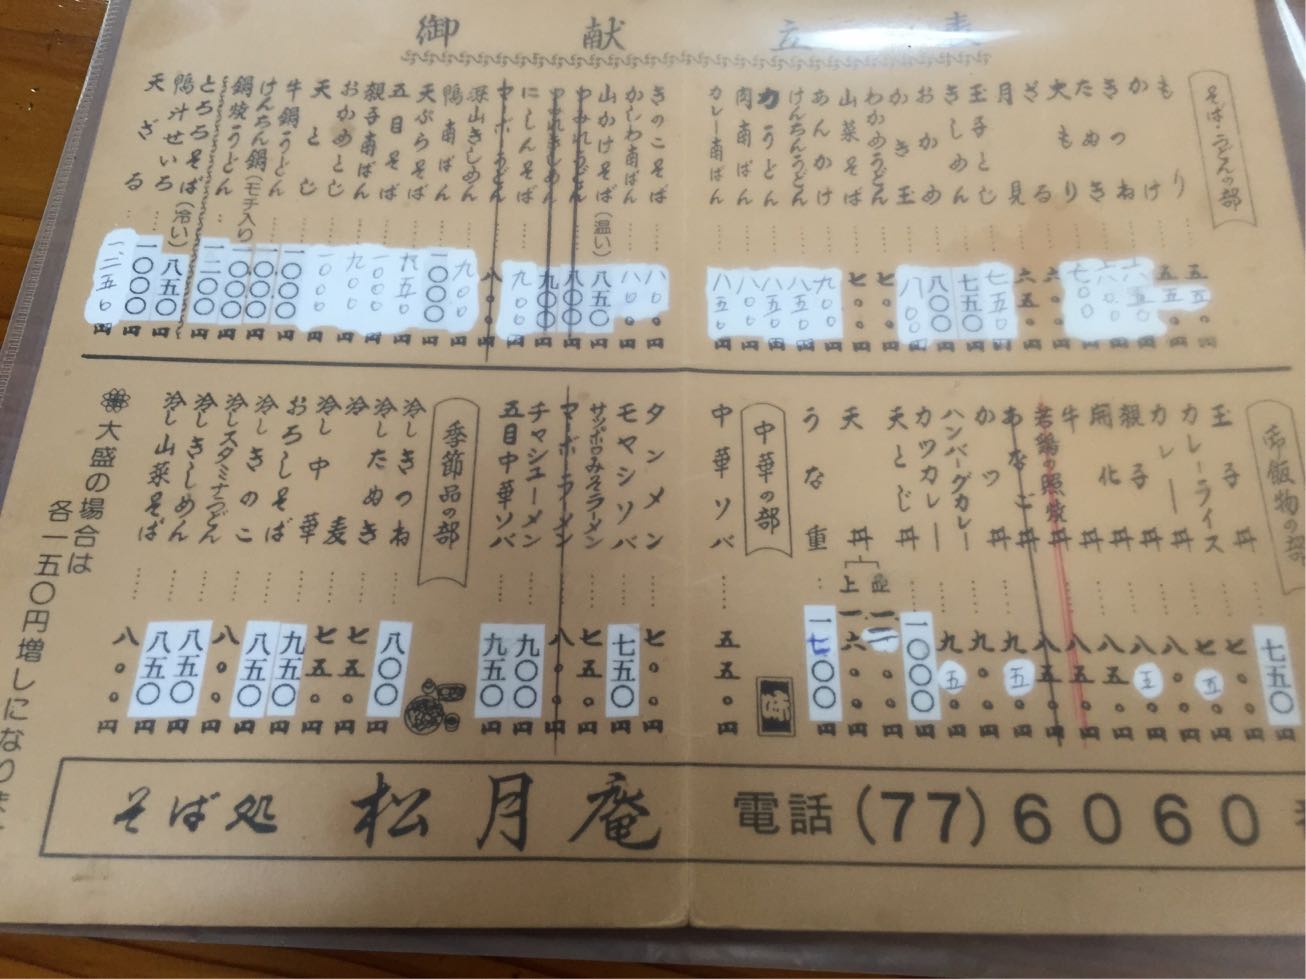 御献立表
そば・うどんの部
もり 五五〇円
かけ 五五〇円
きつね 六五〇円
たぬき 六〇〇円
大もり 七〇〇円
ざる 六〇〇円
月見 六五〇円
玉子とじ 七五〇円
きしめん 七五〇円
おかめ 八〇〇円
かき玉 八〇〇円
わかめうどん 七〇〇円
山菜そば 七〇〇円
あんかけ 九〇〇円
けんちんうどん 八五〇円
力うどん 八五〇円
肉南ばん 八〇〇円
カレー南ばん 八五〇円
きのこそば 八〇〇円
かしわ南ばん 八〇〇円
山かけそば(温い) 八五〇円
八〇〇円
九〇〇円
にしんそば 九〇〇円
八〇〇円
きしめん 九〇〇円
鴨南ばん 一〇〇〇円
天ぷらそば 八五〇円
五目そば 一〇〇〇円
親子南ばん 九〇〇円
おかめとじ 一〇〇〇円
天とじ
牛鍋うどん 一〇〇〇円
けんちん鍋(モチ入り) 一〇〇〇円
鍋焼うどん 一〇〇〇円
とろろそば(冷い) 一二〇〇円
鴨汁せいろ 八五〇円
天ざる 一〇〇〇円
一、二五〇円
御飯物の部
七五〇円
玉子丼 七〇〇円
カレーライス 七五〇円
カレー丼 八〇〇円
親子丼 八五〇円
開化丼 八五〇円
牛丼 八〇〇円
若鶏の照焼 八五〇円
あなご丼 八五〇円
かつ丼 九五〇円
ハンバーグカレー 九〇〇円
カツカレー 九五〇円
天とじ丼 一〇〇〇円
天丼 並
上 一六〇〇円
うな重 一七〇〇円
中華の部
中華ソバ 五五〇円
タンメン 七〇〇円
モヤシソバ 七五〇円
サッポロみそラーメン 七五〇円
マーボラーメン 八〇〇円
チャシューメン 九〇〇円
五目中華ソバ 九五〇円
季節品の部
冷しきつね 八〇〇円
冷したぬき 七五〇円
冷麦 七五〇円
冷し中華 九五〇円
おろしそば 八五〇円
冷しきのこ 八〇〇円
冷しスタミナうどん 八五〇円
冷しきしめん 八五〇円
冷し山菜そば 八〇〇円
大盛の場合は
各一五〇円増しになりま
そば処 松月庵 電話(77)6060